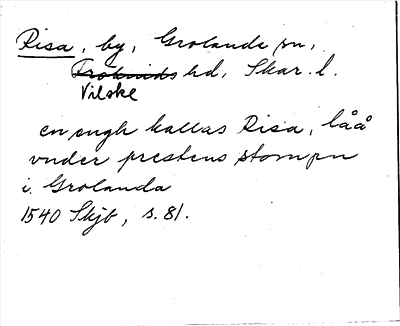 Risa, by, Grolanda sn,
Frökinds hd, Skar. l.
Vilske
en engh kallas Risa, låå
vnder prestens stompn
i Grolanda
1540 Skjb, s. 81.